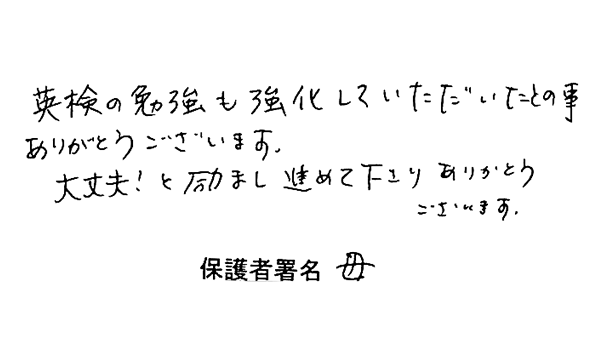 英検の勉強も強化していただいたとの事
ありがとうございます.
大丈夫!と励まし進めて下さりありがとう
ございます.
保護者署名 母